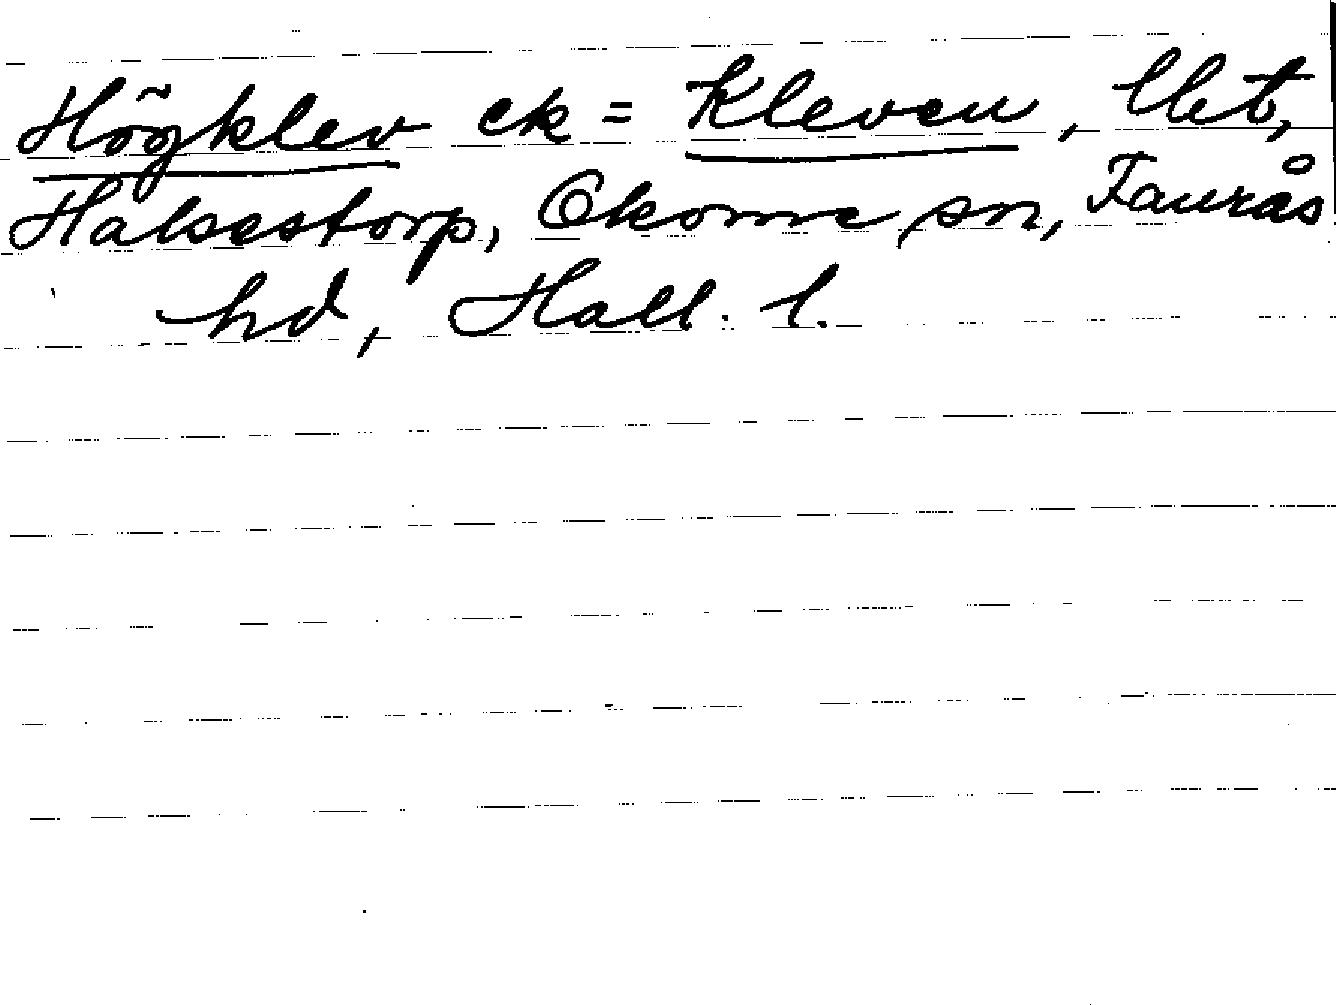 Högklev ek = Kleven, lht,
Halsestorp, Okome sn, Faurås
hd, Hall. l.